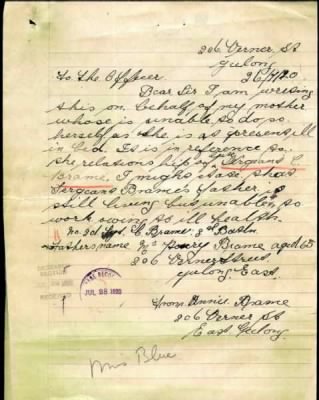 206 Verner St
Geelong
26/4/20
To the Officer
Dear Sir I am writing
this on behalf of my mother
whose is unable to do so
herself as she is at present ill
in bed. It is in reference to
the relationship by Sergeant C
Brame. I might state that
Sergeant Brame's father is
still living but unable to
work owing to ill health.
Sgt. C Brame 8th Battn
Fathers name Mr Henry Brame aged 65
206 Verner Street
Geelong East
From Annie Brame
206 Verner St
East Geelong
Miss Blue